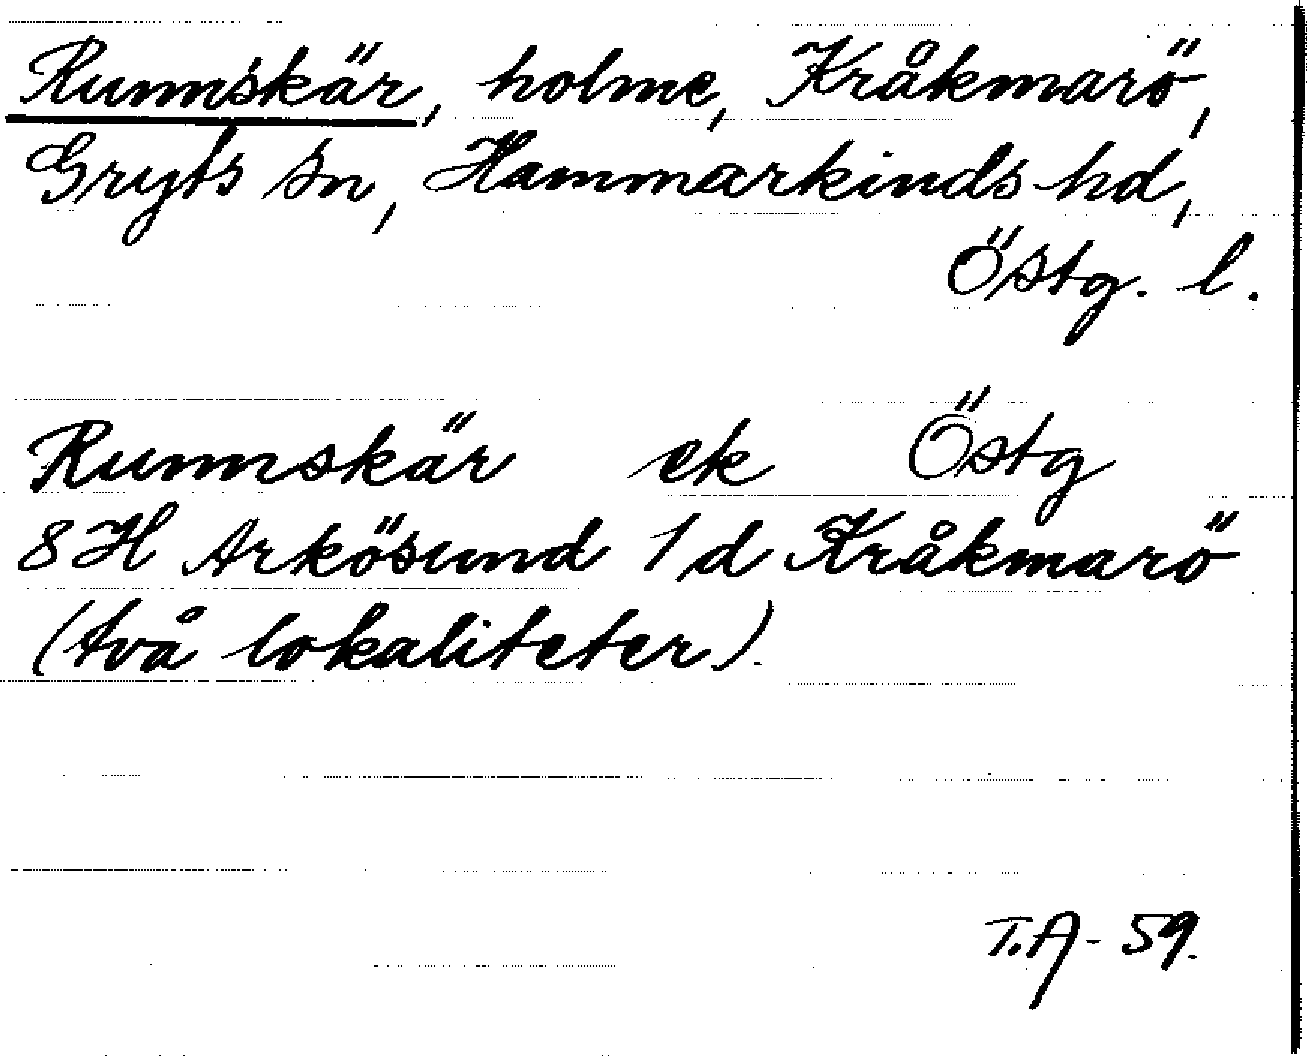 Runnskär, holme, Kråkmarö,
Gryts sn, Hammarkinds hd,
Östg. l.
Runnskär ek Östg
8H Arkösund 1d Kråkmarö
(två lokaliteter).
T.A- 59.